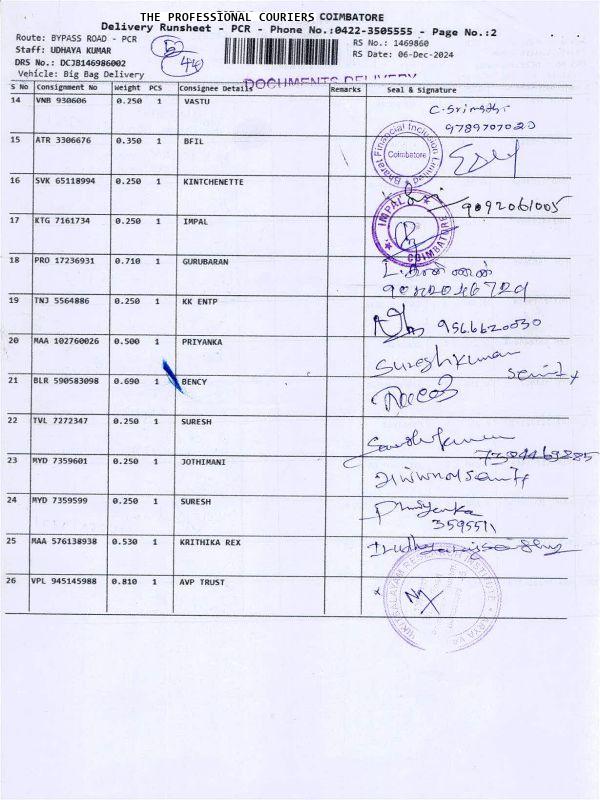 THE PROFESSIONAL COURIERS COIMBATORE
Delivery Runsheet - PCR - Phone No.:0422-3505555 - Page No.:2
Route: BYPASS ROAD - PCR
Staff: UDHAYA KUMAR
DRS No.: DCJB146986002
Vehicle: Big Bag Delivery
44
RS No.: 1469860
RS Date: 06-Dec-2024
DOCUMENTS DELIVERY
S No Consignment No Weight PCS Consignee Details Remarks Seal & Signature
14 VNB 930606 0.250 1 VASTU
9789707020
15 ATR 3306676 0.350 1 BFIL
Bharat Financial Inclusion Limited
Coimbatore
16 SVK 65118994 0.250 1 KINTCHENETTE
9092061005
17 KTG 7161734 0.250 1 IMPAL
IMPAL
COIMBATORE
18 PRO 17236931 0.710 1 GURUBARAN
19 TNJ 5564886 0.250 1 KK ENTP
9566620030
20 MAA 102760026 0.500 1 PRIYANKA
Sureshkumar
21 BLR 590583098 0.690 1 BENCY
22 TVL 7272347 0.250 1 SURESH
23 MYD 7359601 0.250 1 JOTHIMANI
24 MYD 7359599 0.250 1 SURESH
Priyanka
3595511
25 MAA 576138938 0.530 1 KRITHIKA REX
26 VPL 945145988 0.810 1 AVP TRUST